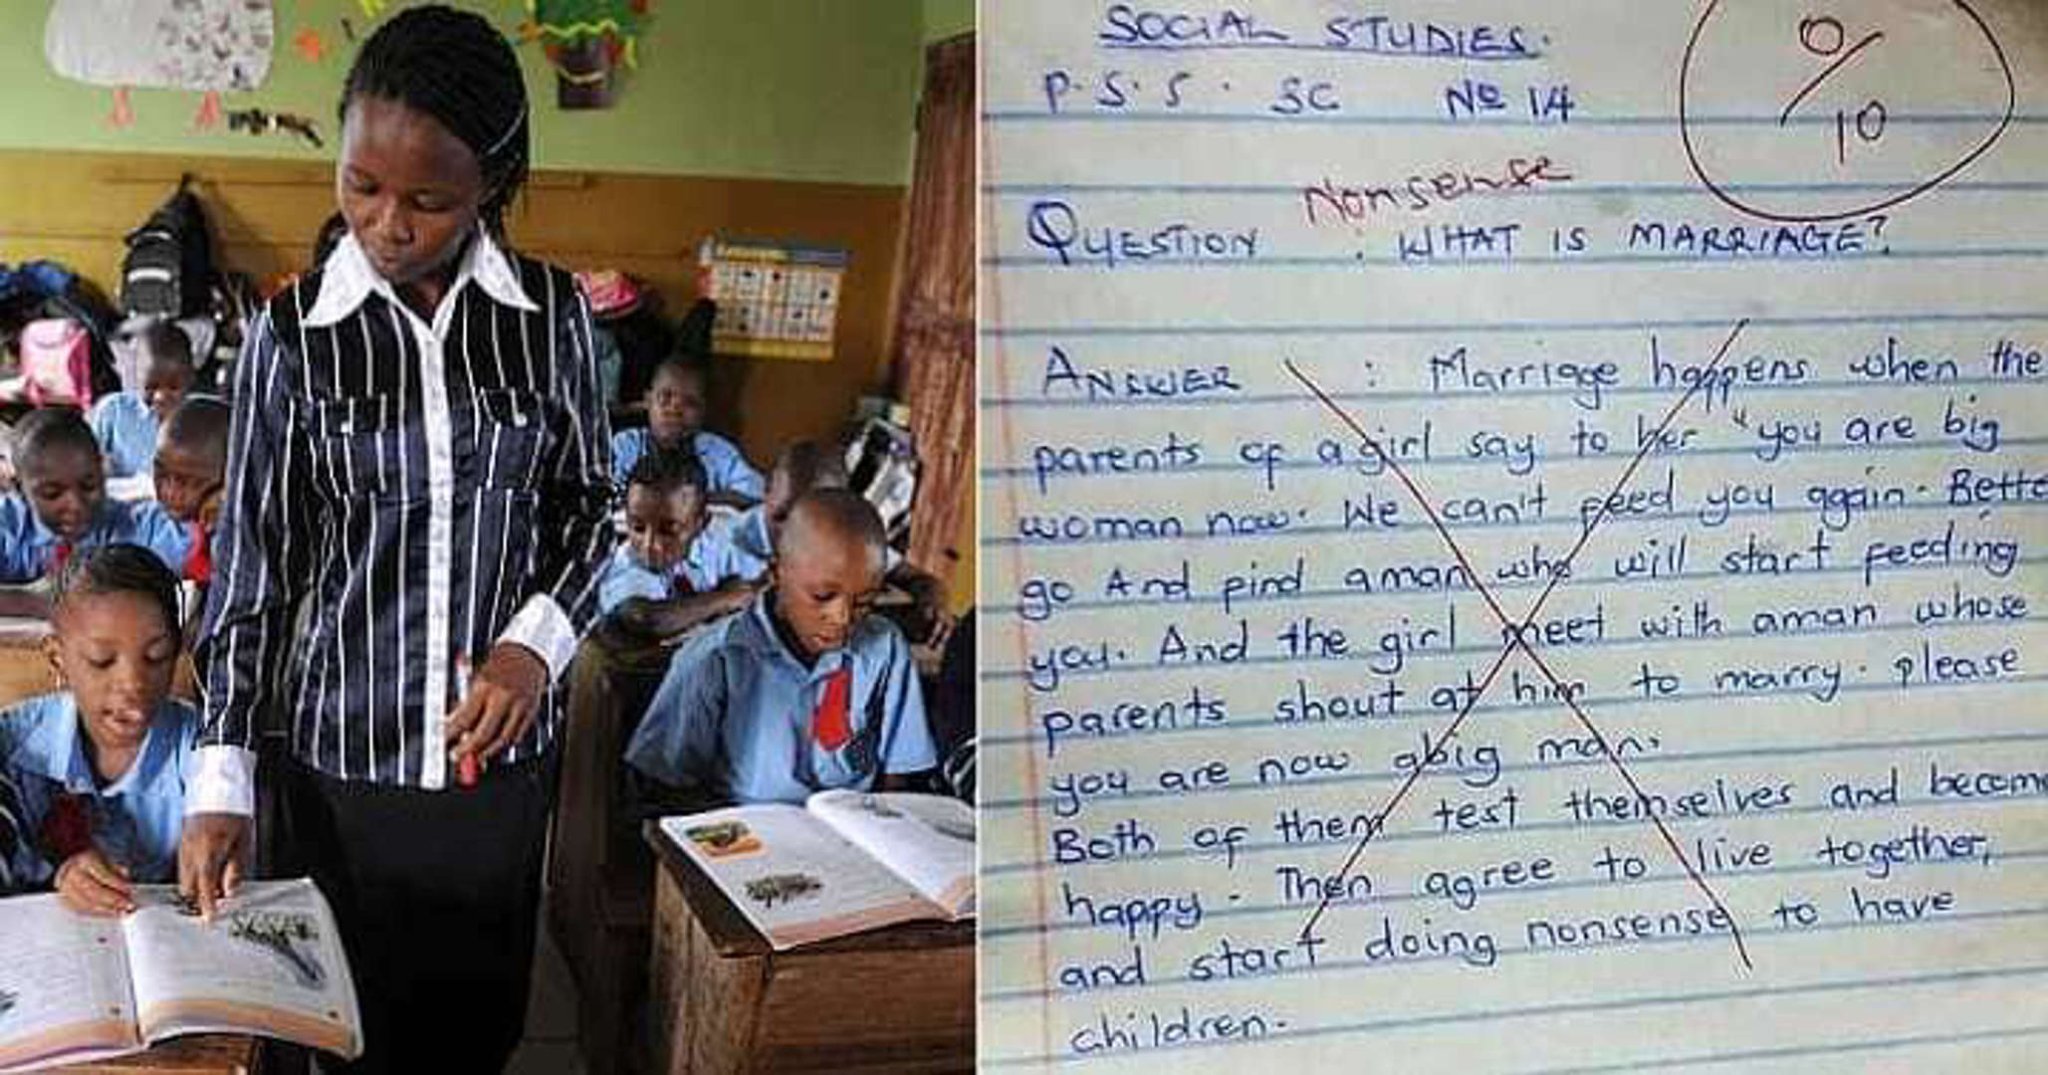 SOCIAL STUDIES.
P.S.5. SC No 14
0/10
Nonsense
QUESTION : WHAT IS MARRIAGE?
ANSWER : Marriage happens when the
parents of a girl say to her "you are big
woman now. We can't feed you again. Bette
go And find aman who will start feeding
you. And the girl meet with aman whose
parents shout at him to marry. please
you are now abig man.
Both of them test themselves and become
happy. Then agree to live together,
and start doing nonsense to have
children.